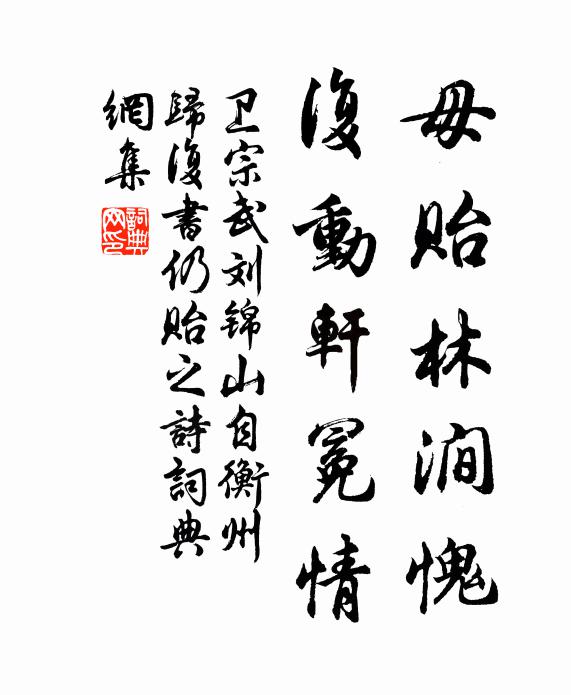 毋貽林澗愧
復動軒冕情
卫宗武刘锦山自衡州
歸復書仍貽之詩詞典
網集
詞典網印